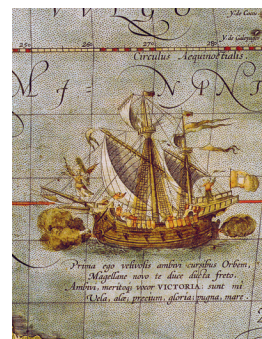 VVLGO
Y. de Cocos
Y. de Galopegos
250.
260.
270.
280.
Circulus Aequinoctialis
M I = N P N I
Prima ego velivolis ambivi cursibus Orbem,
Magellane novo te duce ducta freto.
Ambivi, meritoq; vocor VICTORIA: sunt mi
Vela, alæ; precium, gloria; pugna, mare.